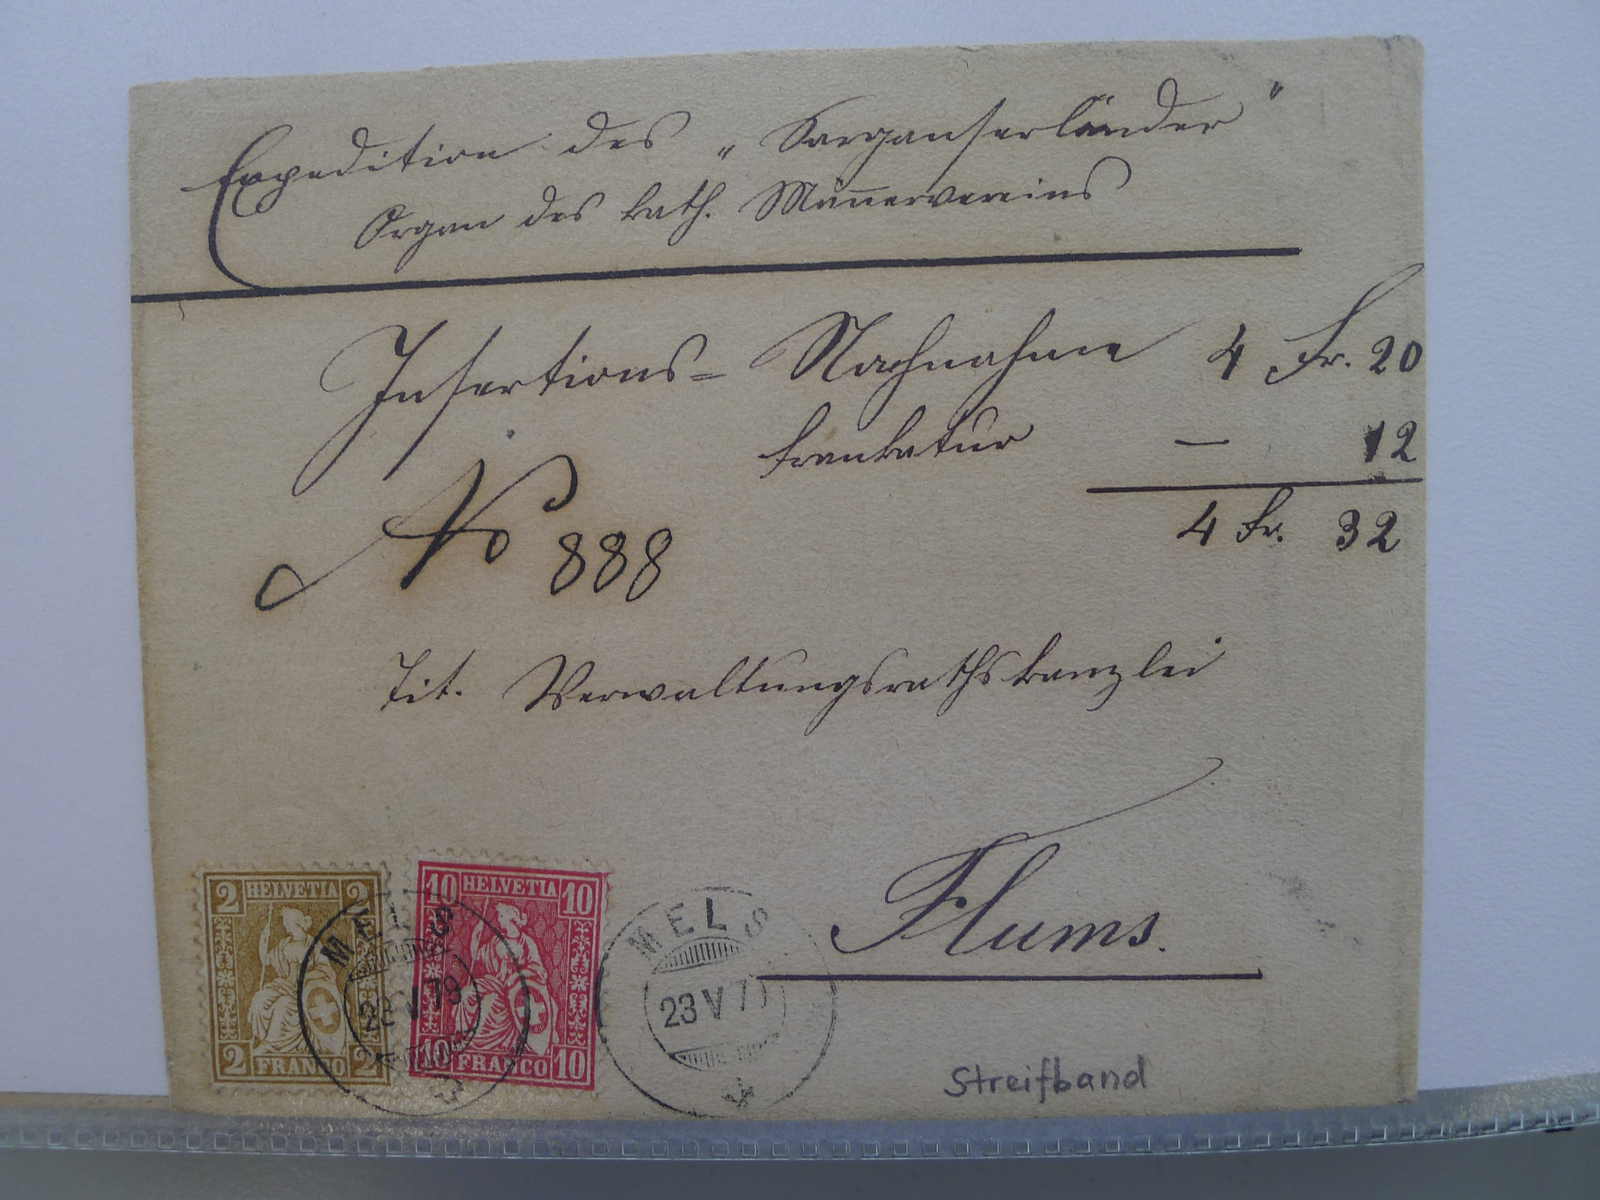 Expedition des „Sarganserländer"
Organ des kath. Männervereins
Insertions= Nachnahme 4 Fr. 20
Frankatur — 12
4 Fr. 32
No 888
Tit. Verwaltungsrathskanzlei
Flums.
2 HELVETIA 2
2 FRANCO 2
10 HELVETIA 10
10 FRANCO 10
MELS
23 V 79
MELS
23 V 7
Streifband